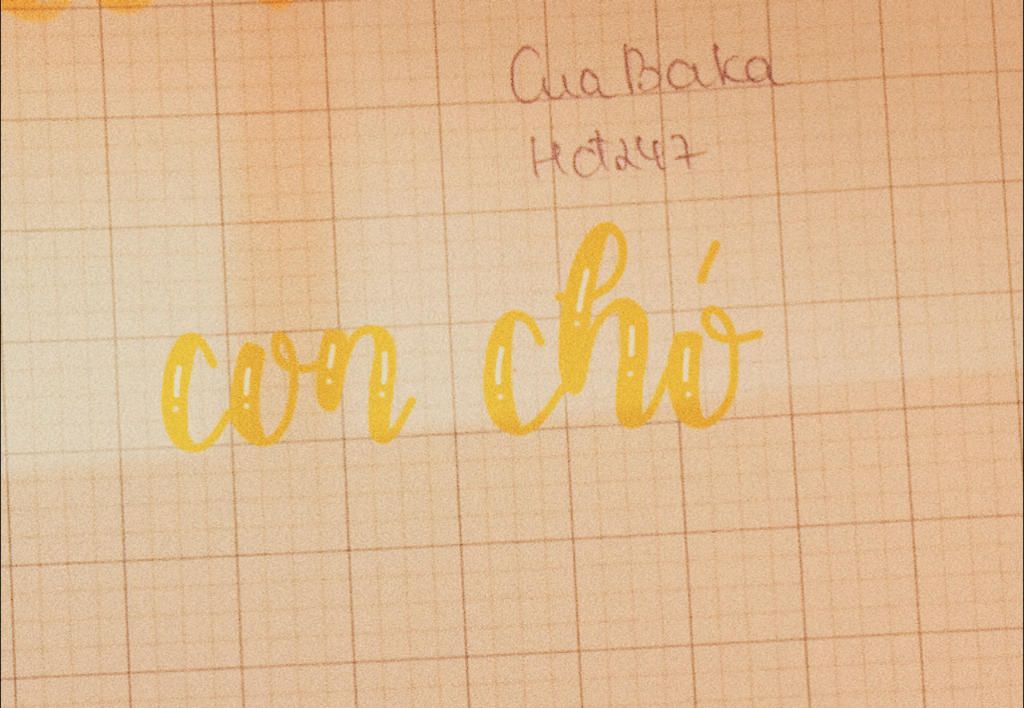 CuaBaka
Hot247
con chó